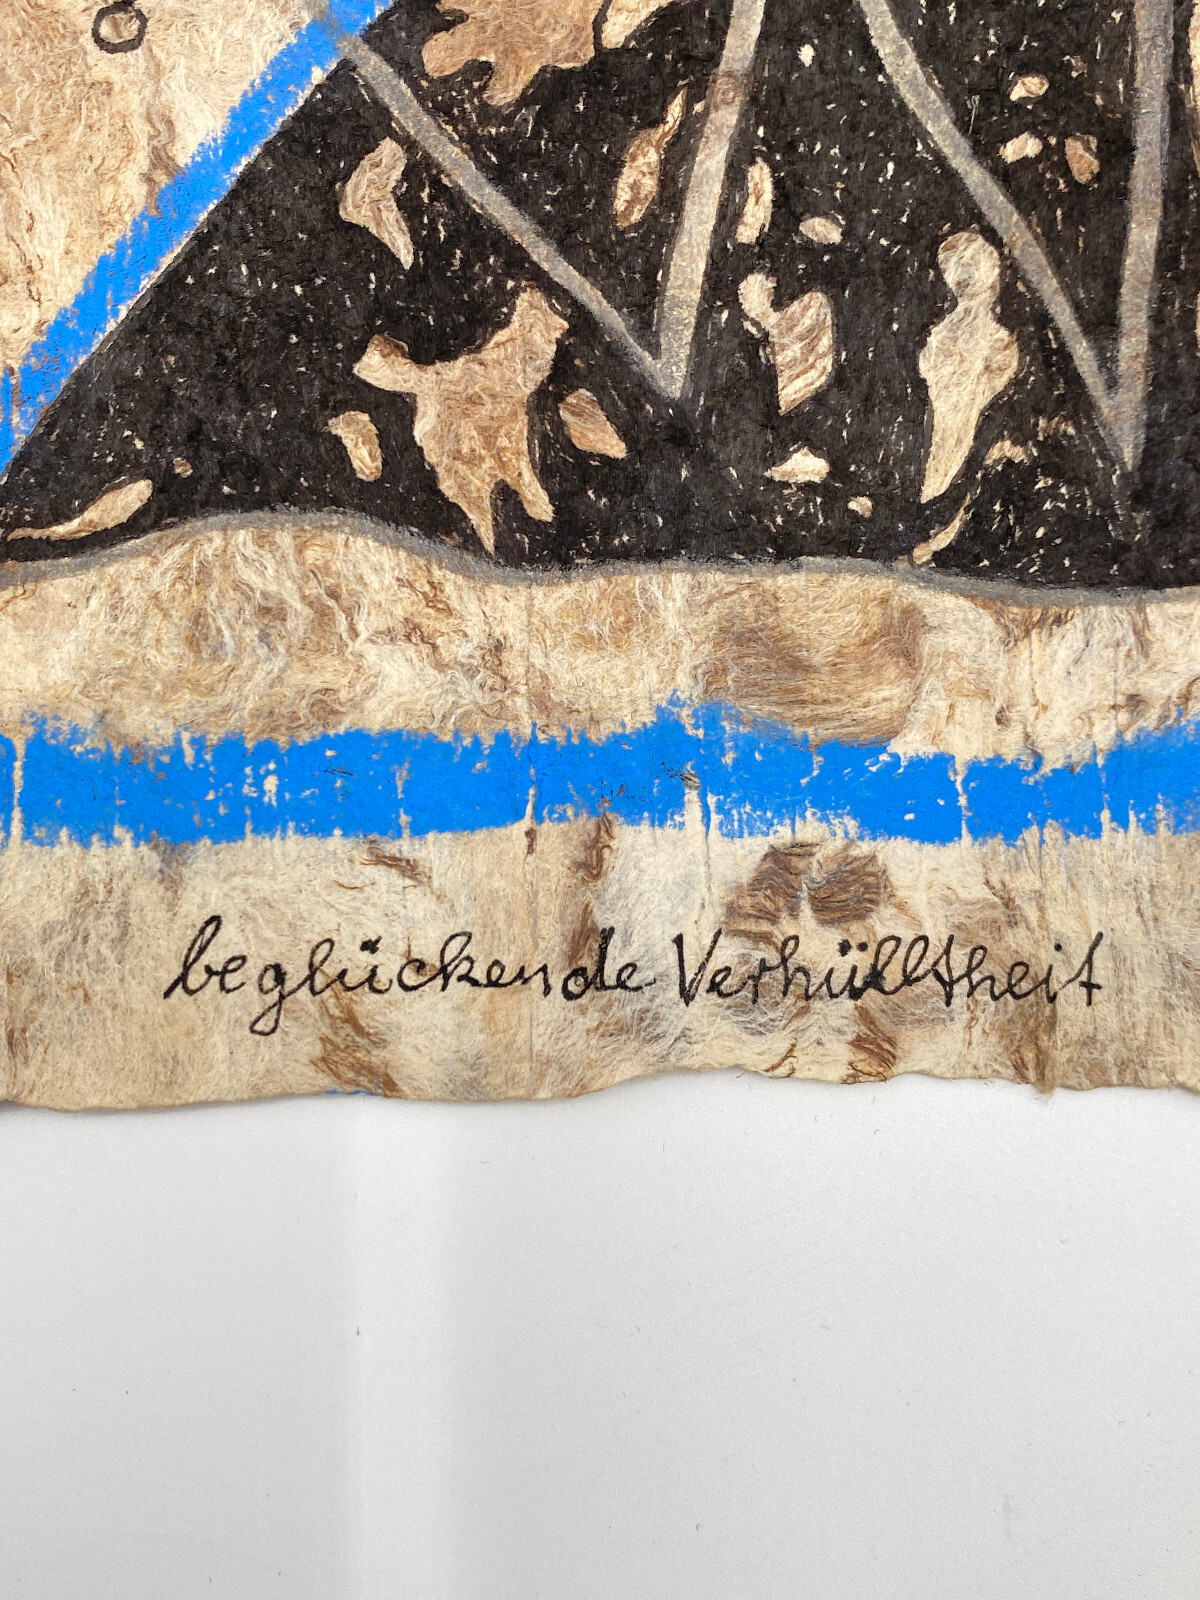 beglückende Verhülltheit